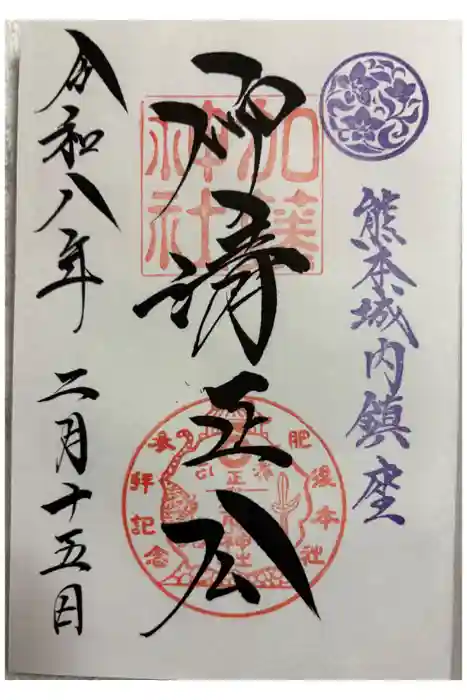 熊本城内鎮座
仰清正公
加藤
神社
肥後本社
参拝記念
令和八年 二月十五日